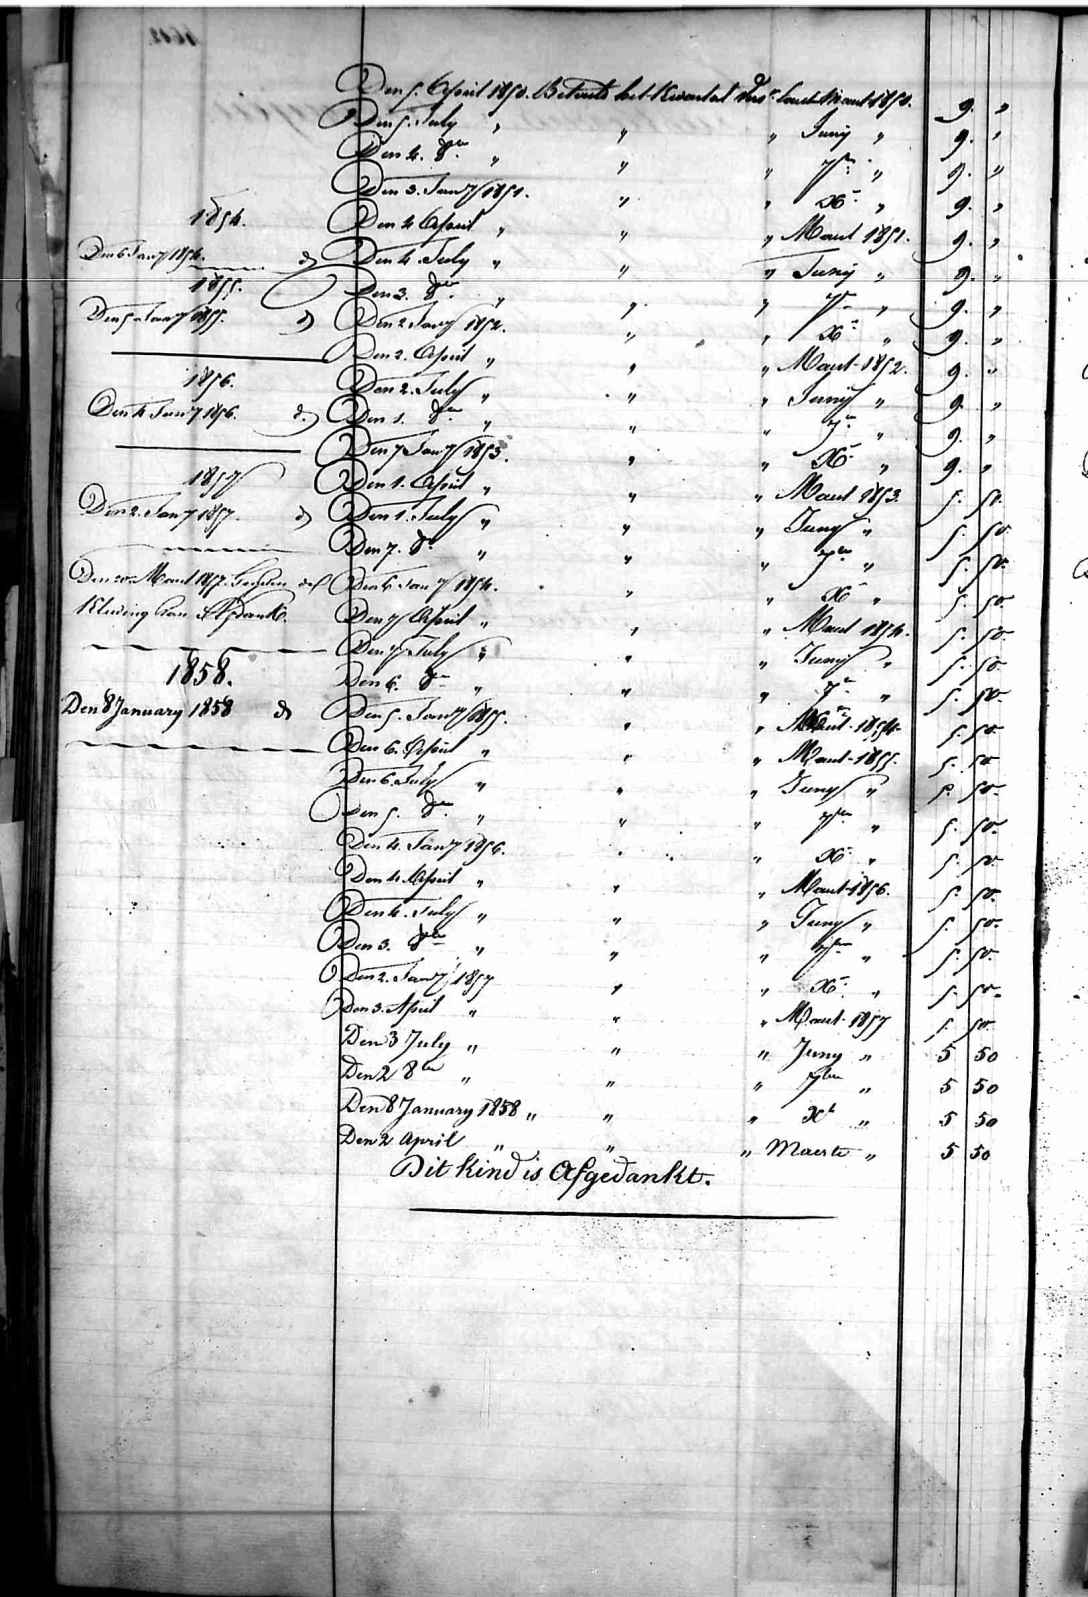 1854.
Den 6 Jany 1854. d
1855.
Den 5 Jany 1855. d
1856.
Den 4 Jany 1856. d.
1857
Den 2. Jany 1857. d
Den 20 Maart 1857.
Kleding van Afdank.
1858.
Den 8 January 1858 d
Den 5. April 1850. Betaald het Kwartal Maart 1850. 9. „
Den 5. July „ „ „ Juny „ 9. „
Den 4. 8br „ „ „ 7br „ 9. „
Den 3. Jany 1851. „ „ Xbr „ 9. „
Den 4 April „ „ „ Maart 1851. 9. „
Den 4 July „ „ „ Juny „ 9. „
Den 3. 8br „ „ „ 7br „ 9. „
Den 2 Jany 1852. „ „ Xbr „ 9. „
Den 2. April „ „ „ Maart 1852. 9. „
Den 2. July „ „ „ Juny „ 9. „
Den 1. 8br „ „ „ 7br „ 9. „
Den 7 Jany 1853. „ „ Xbr „ 9. „
Den 1. April „ „ „ Maart 1853. 5. 50.
Den 1. July „ „ „ Juny „ 5. 50
Den 7. 8br „ „ „ 7br „ 5. 50.
Den 6 Jany 1854. „ „ Xbr „ 5. 50.
Den 7 April „ „ „ Maart 1854. 5. 50.
Den 7 July „ „ „ Juny „ 5. 50.
Den 6. 8br „ „ „ 7br „ 5. 50.
Den 5. Jany 1855. „ „ 1854. 5. 50
Den 6. April „ „ „ Maart 1855. 5. 50
Den 6. July „ „ „ Juny „ 5. 50.
Den 5. 8br „ „ „ 7br „ 5. 50.
Den 4. Jany 1856. „ „ Xbr „ 5. 50.
Den 4 April „ „ „ Maart 1856. 5. 50.
Den 4. July „ „ „ Juny „ 5. 50.
Den 3. 8br „ „ „ 7br „ 5. 50.
Den 2. Jany 1857 „ „ Xbr „ 5. 50.
Den 3. April „ „ „ Maart 1857 5. 50.
Den 3 July „ „ „ Juny „ 5 50
Den 2 8br „ „ „ 7br „ 5 50
Den 8 January 1858 „ „ „ Xb „ 5 50
Den 2 April „ „ „ Maerte „ 5 50
Dit kind is Afgedankt.